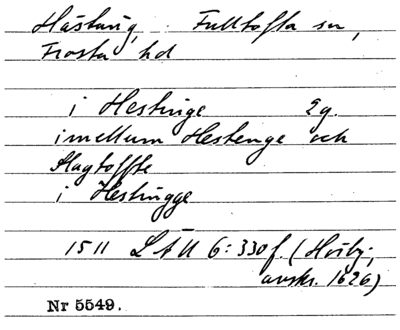 Hästäng, Fulltofta sn,
Frosta hd
i Hestinge 2g.
imellum Hestenge och
Slagtoffte
i Hestingge
1511 LÄU 6:330f. (Hviby;
avskr. 1626)
Nr 5549.